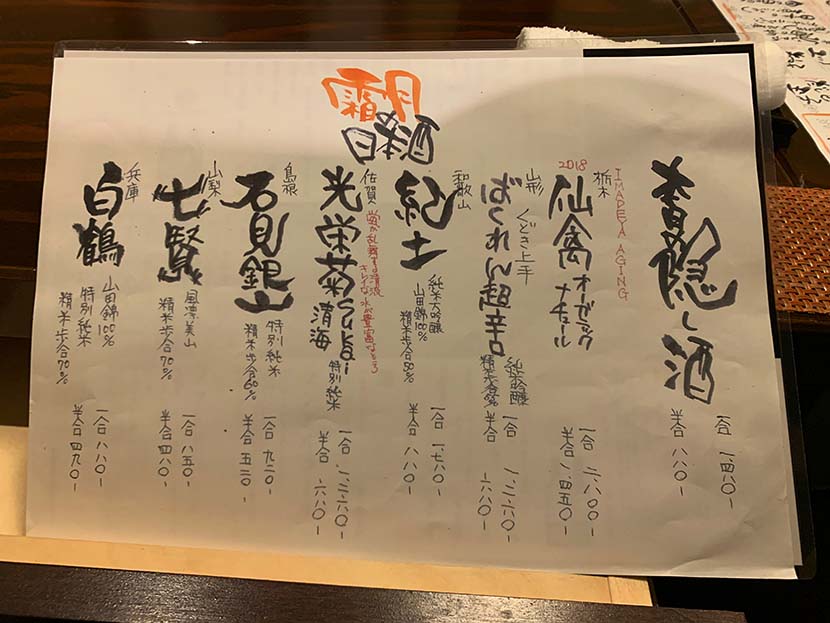 隠し酒
一合 一四八〇-
半合 八八〇-
IMADEYA AGING
2018
栃木
仙禽 オーガニック
ナチュール
一合 二八〇〇-
半合 一.四五〇-
山形
くどき上手
ばくれん超辛口
純米吟醸
精米歩合
一合 一、二六〇-
半合 六八〇-
和歌山
紀土
純米大吟醸
山田錦100%
精米歩合50%
一合 一、七六〇-
半合 八八〇-
佐賀
蛍が乱舞する清流
キレイな水が豊富なところ
光栄菊
清海
特別純米
一合 一、二六〇-
半合 六八〇-
島根
石見銀山
特別純米
精米歩合60%
一合 九二〇-
半合 五二〇-
山梨
七賢
風凛美山
精米歩合70%
一合 八五〇-
半合 四八〇-
兵庫
白鶴
山田錦100%
特別純米
精米歩合70%
一合 八八〇-
半合 四九〇-